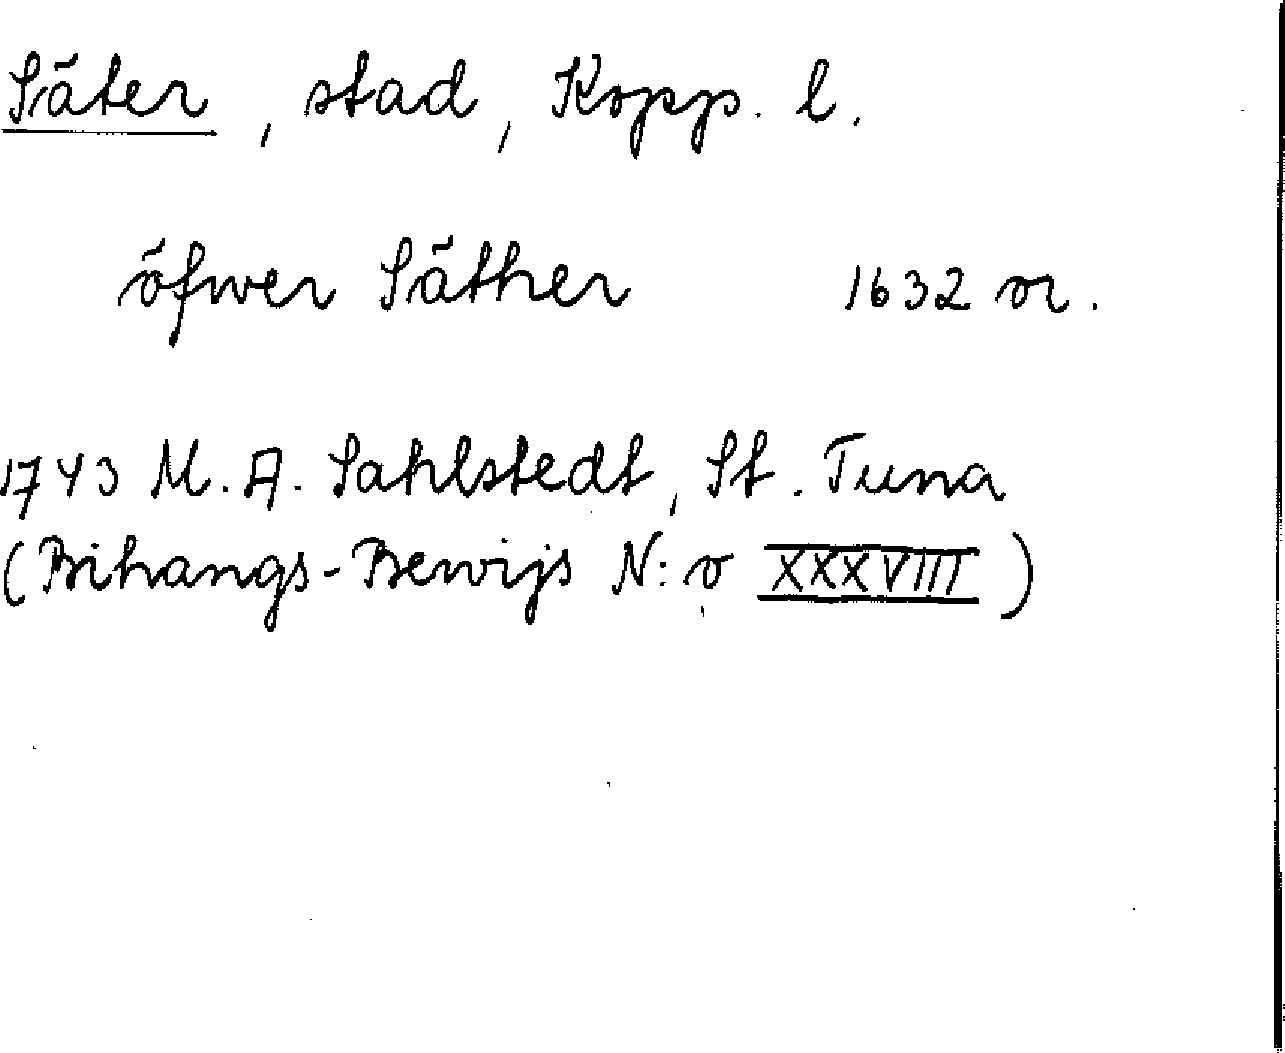 Säter, stad, Kopp. l.
öfwer Säther 1632 or.
1743 M. A. Sahlstedt, St. Tuna
(Bihangs-Bewijs N:o XXXVIII)